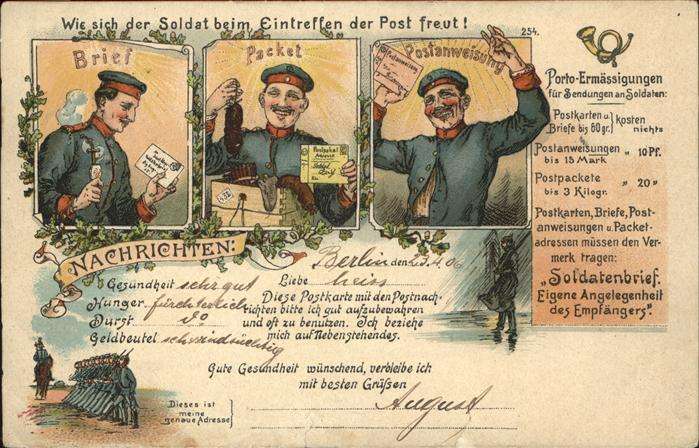 Wie sich der Soldat beim Eintreffen der Post freut!
254.
Brief
Packet
Postanweisung
Postanweisung
Postpaket
Porto-Ermässigungen
für Sendungen an Soldaten:
Postkarten u.
Briefe bis 60 gr. } kosten nichts
Postanweisungen „ 10 Pf.
bis 15 Mark
Postpackete „ 20 „
bis 3 Kilogr.
Postkarten, Briefe, Post-
anweisungen u. Packet-
adressen müssen den Ver-
merk tragen:
„Soldatenbrief.
Eigene Angelegenheit
des Empfängers“.
NACHRICHTEN:
Berlin den 23.4.06
Gesundheit sehr gut
Hunger fürchterlich
Durst do
Geldbeutel schwindsüchtig
Liebe heiss
Diese Postkarte mit den Postnach-
richten bitte ich gut aufzubewahren
und oft zu benutzen. Ich beziehe
mich auf Nebenstehendes.
Gute Gesundheit wünschend, verbleibe ich
mit besten Grüßen
August
Dieses ist
meine
genaue Adresse